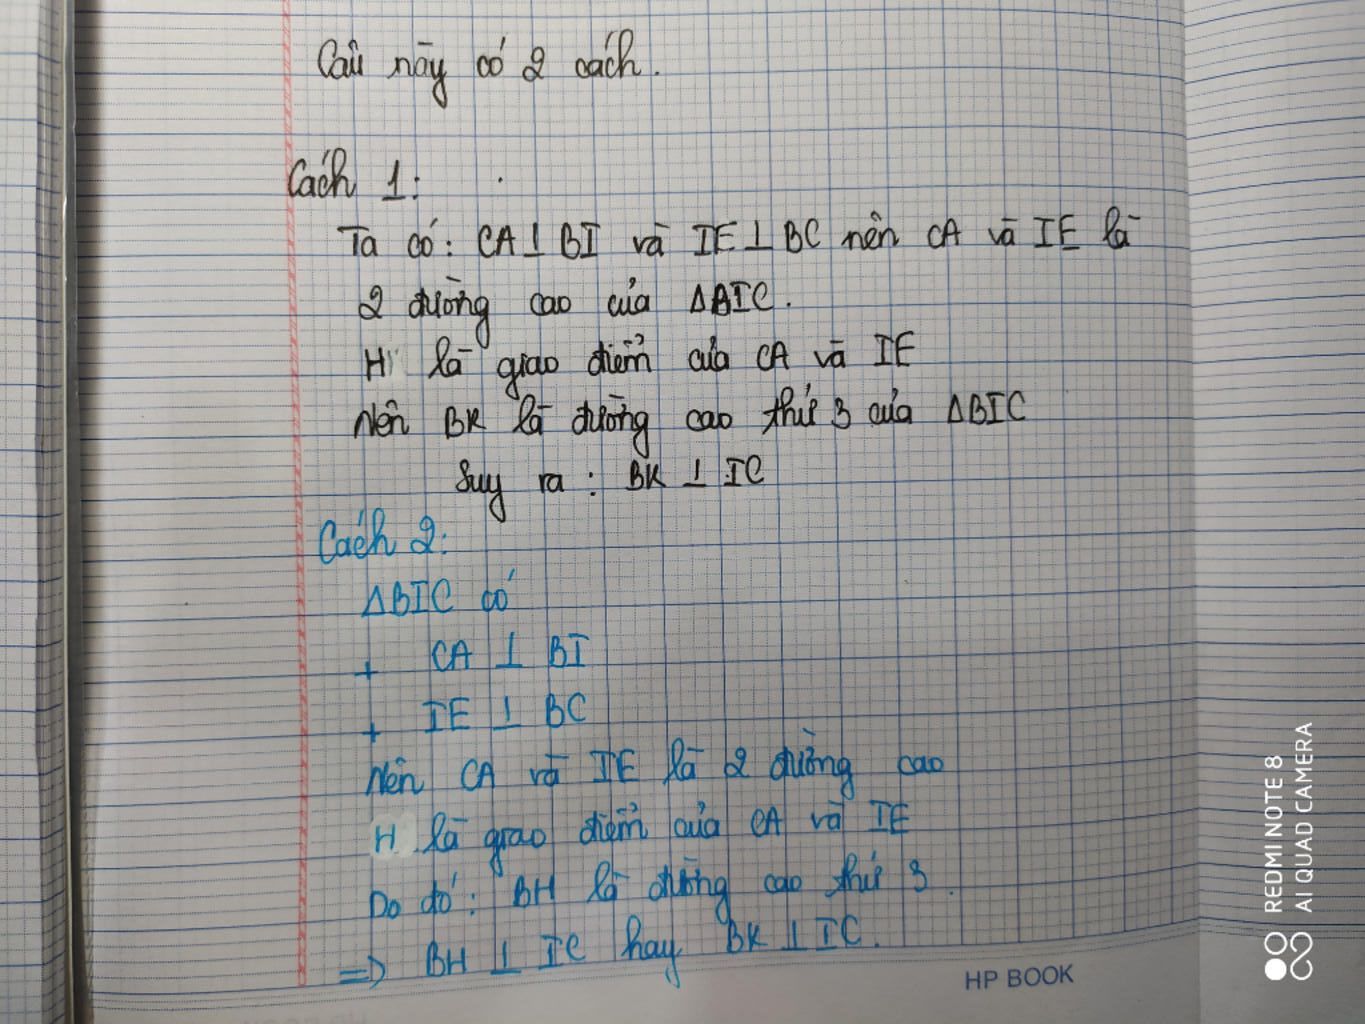 Câu này có 2 cách.
Cách 1:
Ta có: CA ⊥ BI và IE ⊥ BC nên CA và IE là
2 đường cao của ΔBIC.
H là giao điểm của CA và IE
Nên BK là đường cao thứ 3 của ΔBIC
Suy ra : BK ⊥ IC
Cách 2:
ΔBIC có
+ CA ⊥ BI
+ IE ⊥ BC
Nên CA và IE là 2 đường cao
H là giao điểm của CA và IE
Do đó: BH là đường cao thứ 3.
=> BH ⊥ IC hay BK ⊥ IC.
HP BOOK
REDMI NOTE 8
AI QUAD CAMERA